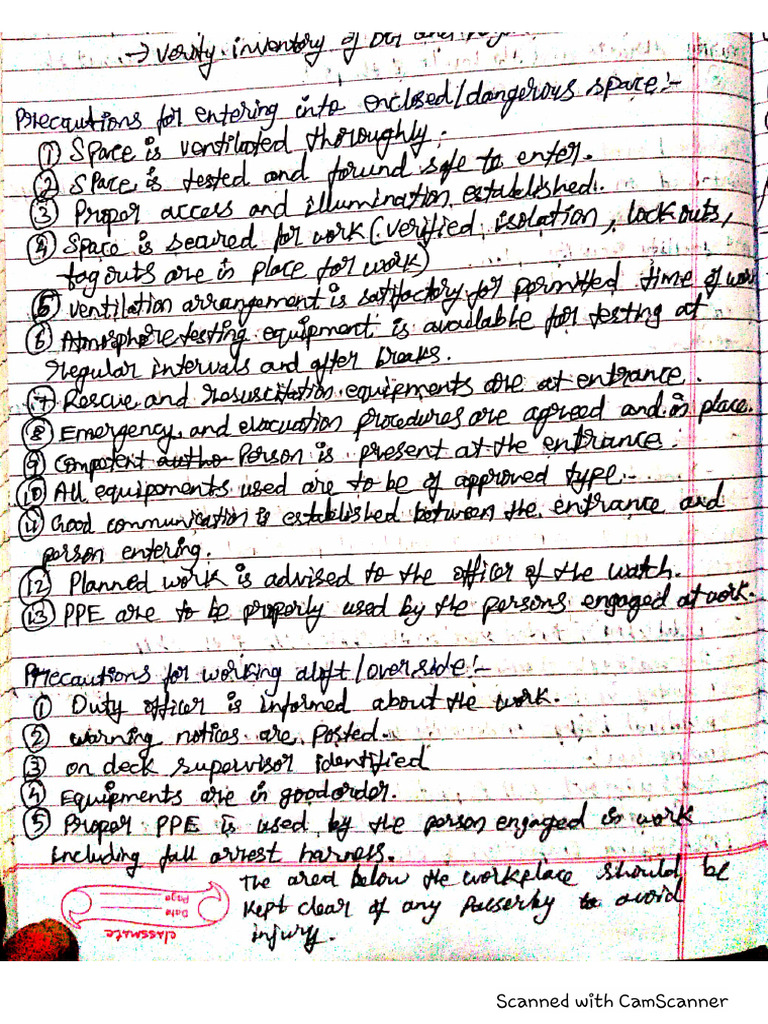 → verify inventory of
Precautions for entering into enclosed/dangerous space:-
① Space is ventilated thoroughly.
② Space is tested and found safe to enter.
③ Proper access and illumination established.
④ Space is secured for work (verified, isolation, lockouts,
tagouts are in place for work)
⑤ ventilation arrangement is satisfactory for permitted time of work
⑥ Atmosphere testing equipment is available for testing at
regular intervals and after breaks.
⑦ Rescue and resuscitation equipments are at entrance.
⑧ Emergency and evacuation procedures are agreed and in place.
⑨ Competent autho Person is present at the entrance.
⑩ All equipoments used are to be of approved type.
⑪ Good communication is established between the entrance and
person entering.
⑫ Planned work is advised to the officer of the watch.
⑬ PPE are to be properly used by the persons engaged at work.
Precautions for working aloft/overside:-
① Duty officer is informed about the work.
② warning notices are posted.
③ on deck supervisor identified
④ Equipments are in good order.
⑤ Proper PPE is used by the person engaged in work
including fall arrest harness.
The area below the workplace should be
kept clear of any passerby to avoid
injury.
classmate
Date
Page
Scanned with CamScanner